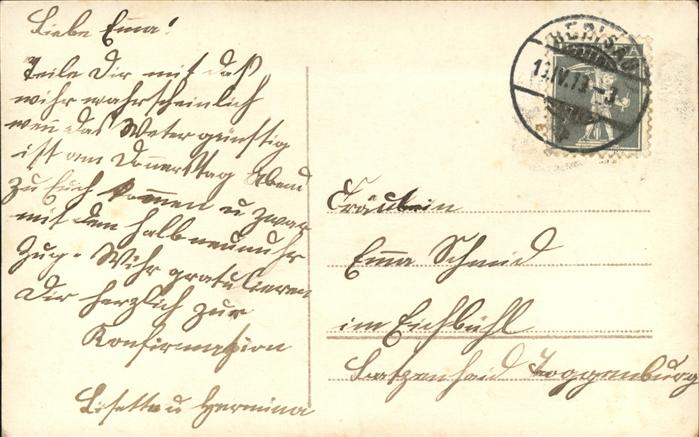 Liebe Emma!
Teile Dir mit daß
wihr wahrscheinlich
wen das Weter günstig
ist am Donnerstag Abend
zu Euch kommen u zwar
mit den halb neun uhr
Zug. Wihr gratulieren
Dir herzlich zur
Konfirmation
Lisette u Hermina
HERISAU
Fräulein
Emma Schmid
im Eichbühl
Batzenheid Toggenburg